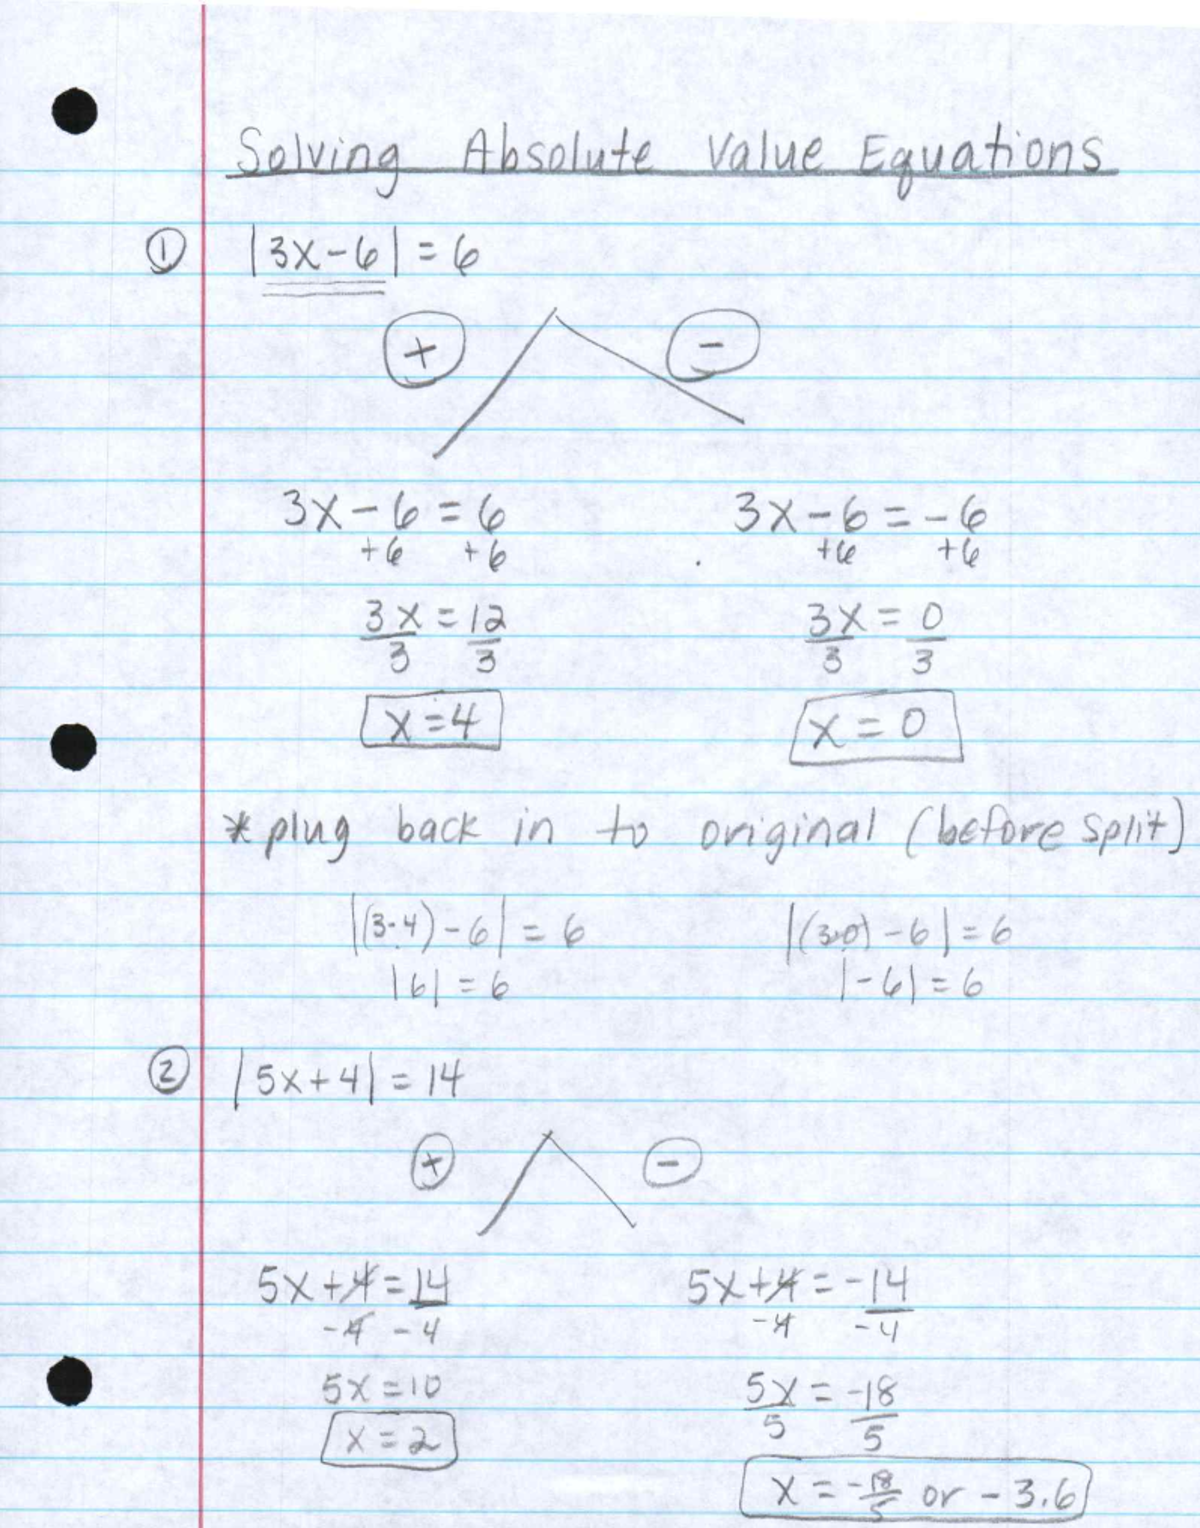 Solving Absolute Value Equations
① |3x-6| = 6
+ -
3x-6 = 6 3x-6 = -6
+6 +6 +6 +6
3x = 12 3x = 0
3 3 3 3
x = 4 x = 0
* plug back in to original (before split)
|(3·4)-6| = 6 |(3·0)-6| = 6
|6| = 6 |-6| = 6
② |5x+4| = 14
+ -
5x+4 = 14 5x+4 = -14
-4 -4 -4 -4
5x = 10 5x = -18
5 5
x = 2 x = -18/5 or -3.6